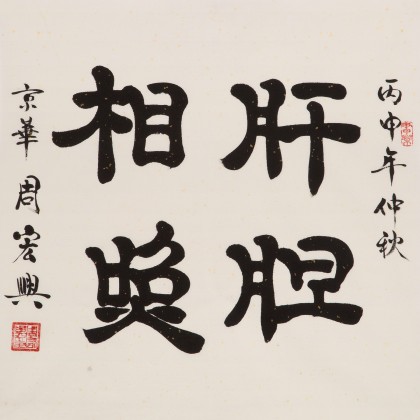 丙申年仲秋
肝胆
相照
京華 周宏興